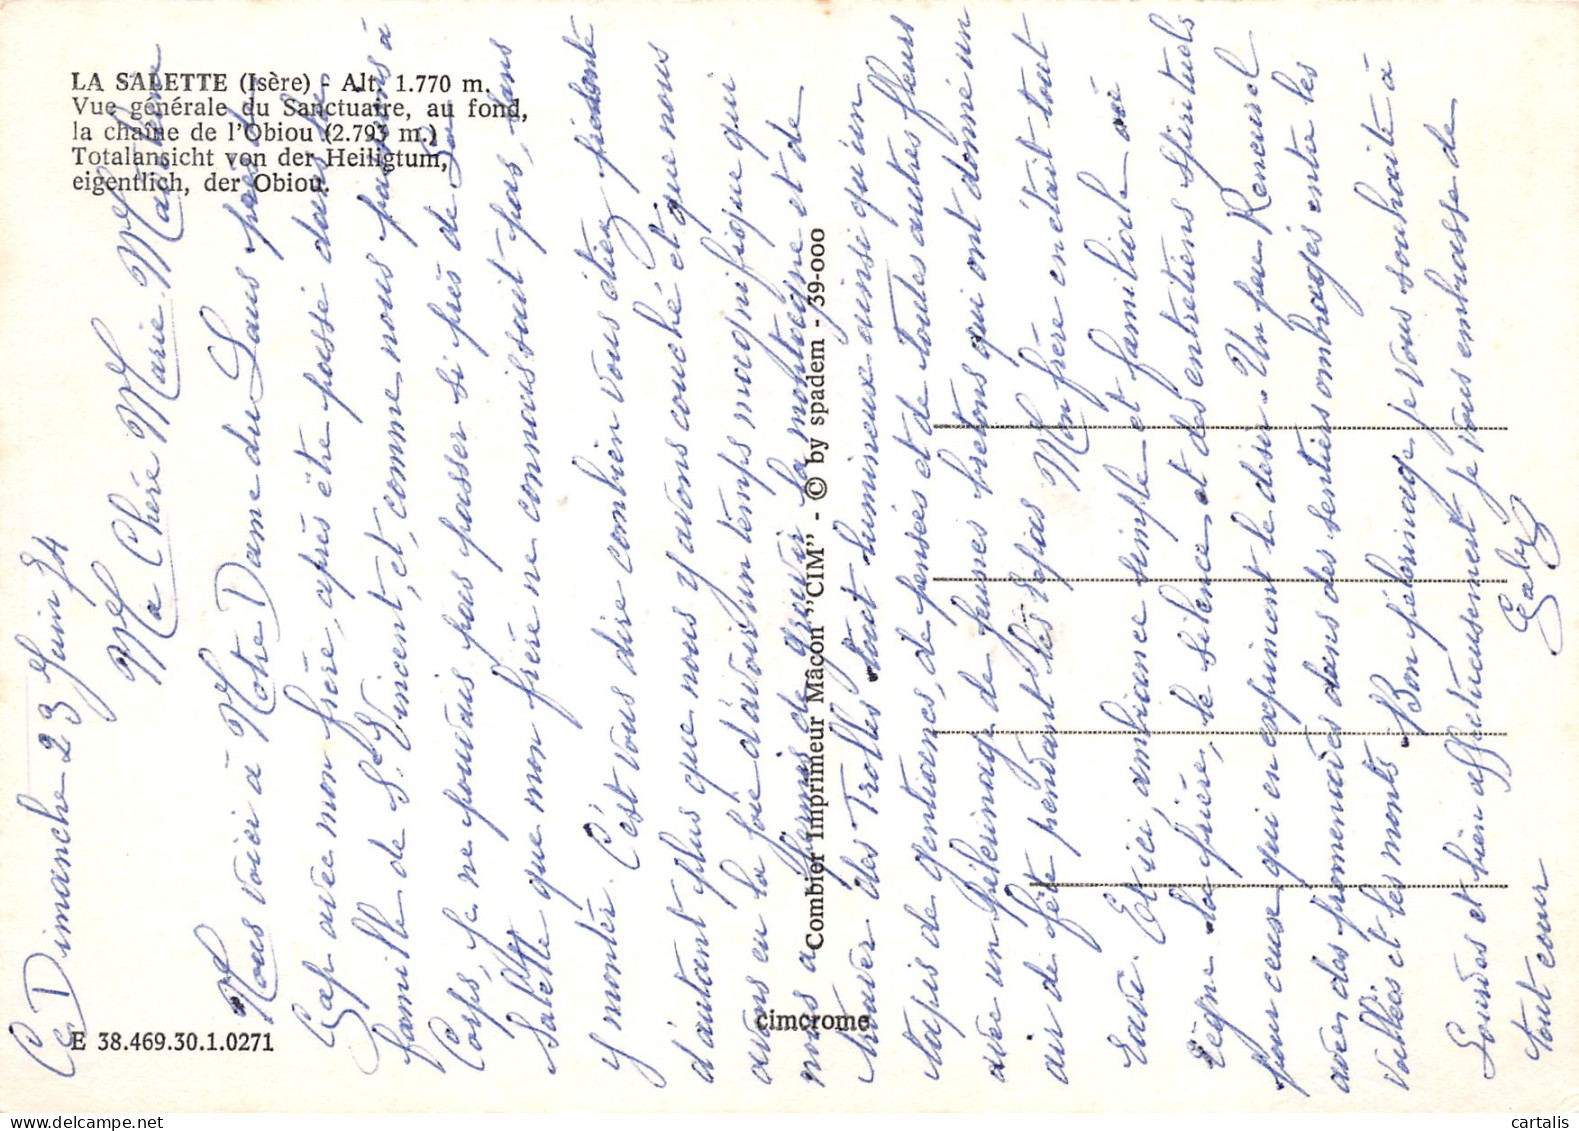 LA SALETTE (Isère) - Alt. 1.770 m.
Vue générale du Sanctuaire, au fond,
la chaîne de l'Obiou (2.793 m.)
Totalansicht von der Heiligtum,
eigentlich, der Obiou.
E 38.469.30.1.0271
Combier Imprimeur Mâcon "CIM" - © by spadem - 39-000
cimcrome
Ce Dimanche 23 Juin 74
Ma Chère Marie-Madeleine
Nous voici à Notre Dame du Laus près de
Gap avec mon frère, après être passé dans la
famille de St Vincent, et, comme nous passions à
Corps, je ne pouvais pas passer si près de La
Salette que mon frère ne connaissait pas, sans
y monter. C'est vous dire combien vous étiez présente
d'autant plus que nous y avons couché et que nous
avons eu la joie d'avoir un temps magnifique qui
nous a permis de gravir la montagne et de
trouver des Trolles tout lumineux ainsi qu'un
tapis de gentianes, de pensées et de toutes autres fleurs
avec un pélerinage de jeunes bretons qui ont donné un
air de fête pendant les repas Mon frère en était tout
ravi. Et ici ambiance simple et familiale où
règne la prière, le silence et des entretiens spirituels
pour ceux qui en expriment le désir. Un peu Rencurel
avec des promenades dans des sentiers ombragés entre les
vallées et les monts. Bon pélerinage je vous souhaite à
Lourdes et bien affectueusement je vous embrasse de
tout cœur Gaby
cartalis